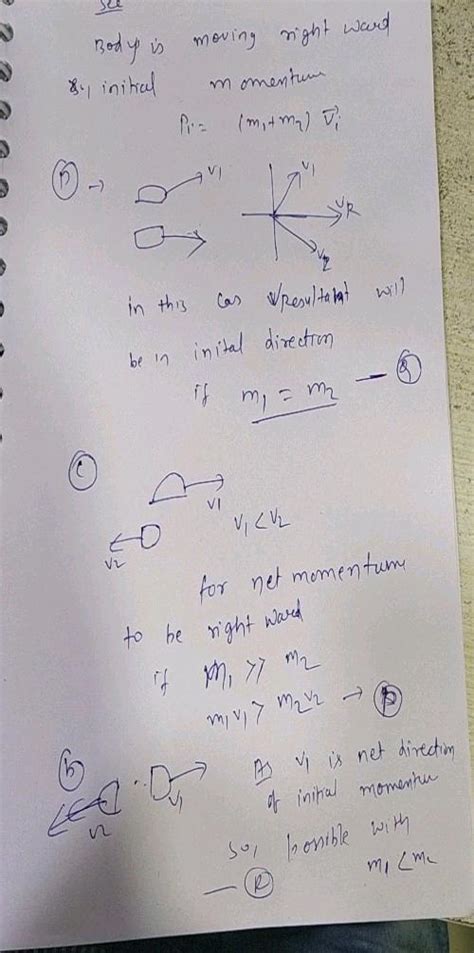 See
Body is moving right ward
So, initial momentum
Pi = (m1+m2) V⃗i
(A) → V1 V1
VR
V2
in this cas resultant will
be in inital direction
if m1 = m2 — (Q)
(C)
V1
V2 V1 < V2
for net momentum
to be right ward
if m1 >> m2
m1v1 > m2v2 → (P)
(b) V2 V1 As v1 is net direction
of initial momentum
So, possible with
m1 < m2
— (R)